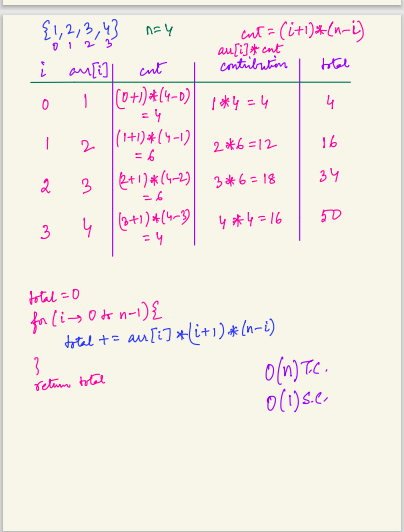 {1,2,3,4} n=4 cnt = (i+1)*(n-i)
0 1 2 3 arr[i]*cnt
i arr[i] cnt contribution total
0 1 (0+1)*(4-0) 1*4 = 4 4
= 4
1 2 (1+1)*(4-1) 2*6=12 16
= 6
2 3 (2+1)*(4-2) 3*6=18 34
= 6
3 4 (3+1)*(4-3) 4*4=16 50
= 4
total = 0
for (i→ 0 to n-1) {
total += arr[i] *(i+1) * (n-i)
}
return total
O(n) T.C.
O(1) S.C.